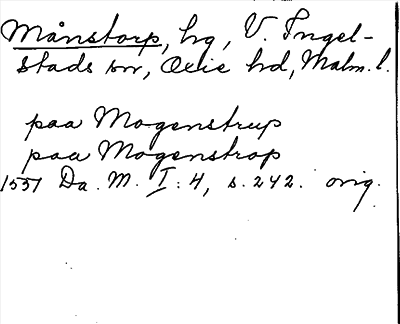 Månstorp, hg, V. Ingel-
stads sn, Oxie hd, Malm. l.
paa Mogenstrup
paa Mogenstrop
1551 Da. M. I: 4, s. 242. orig.